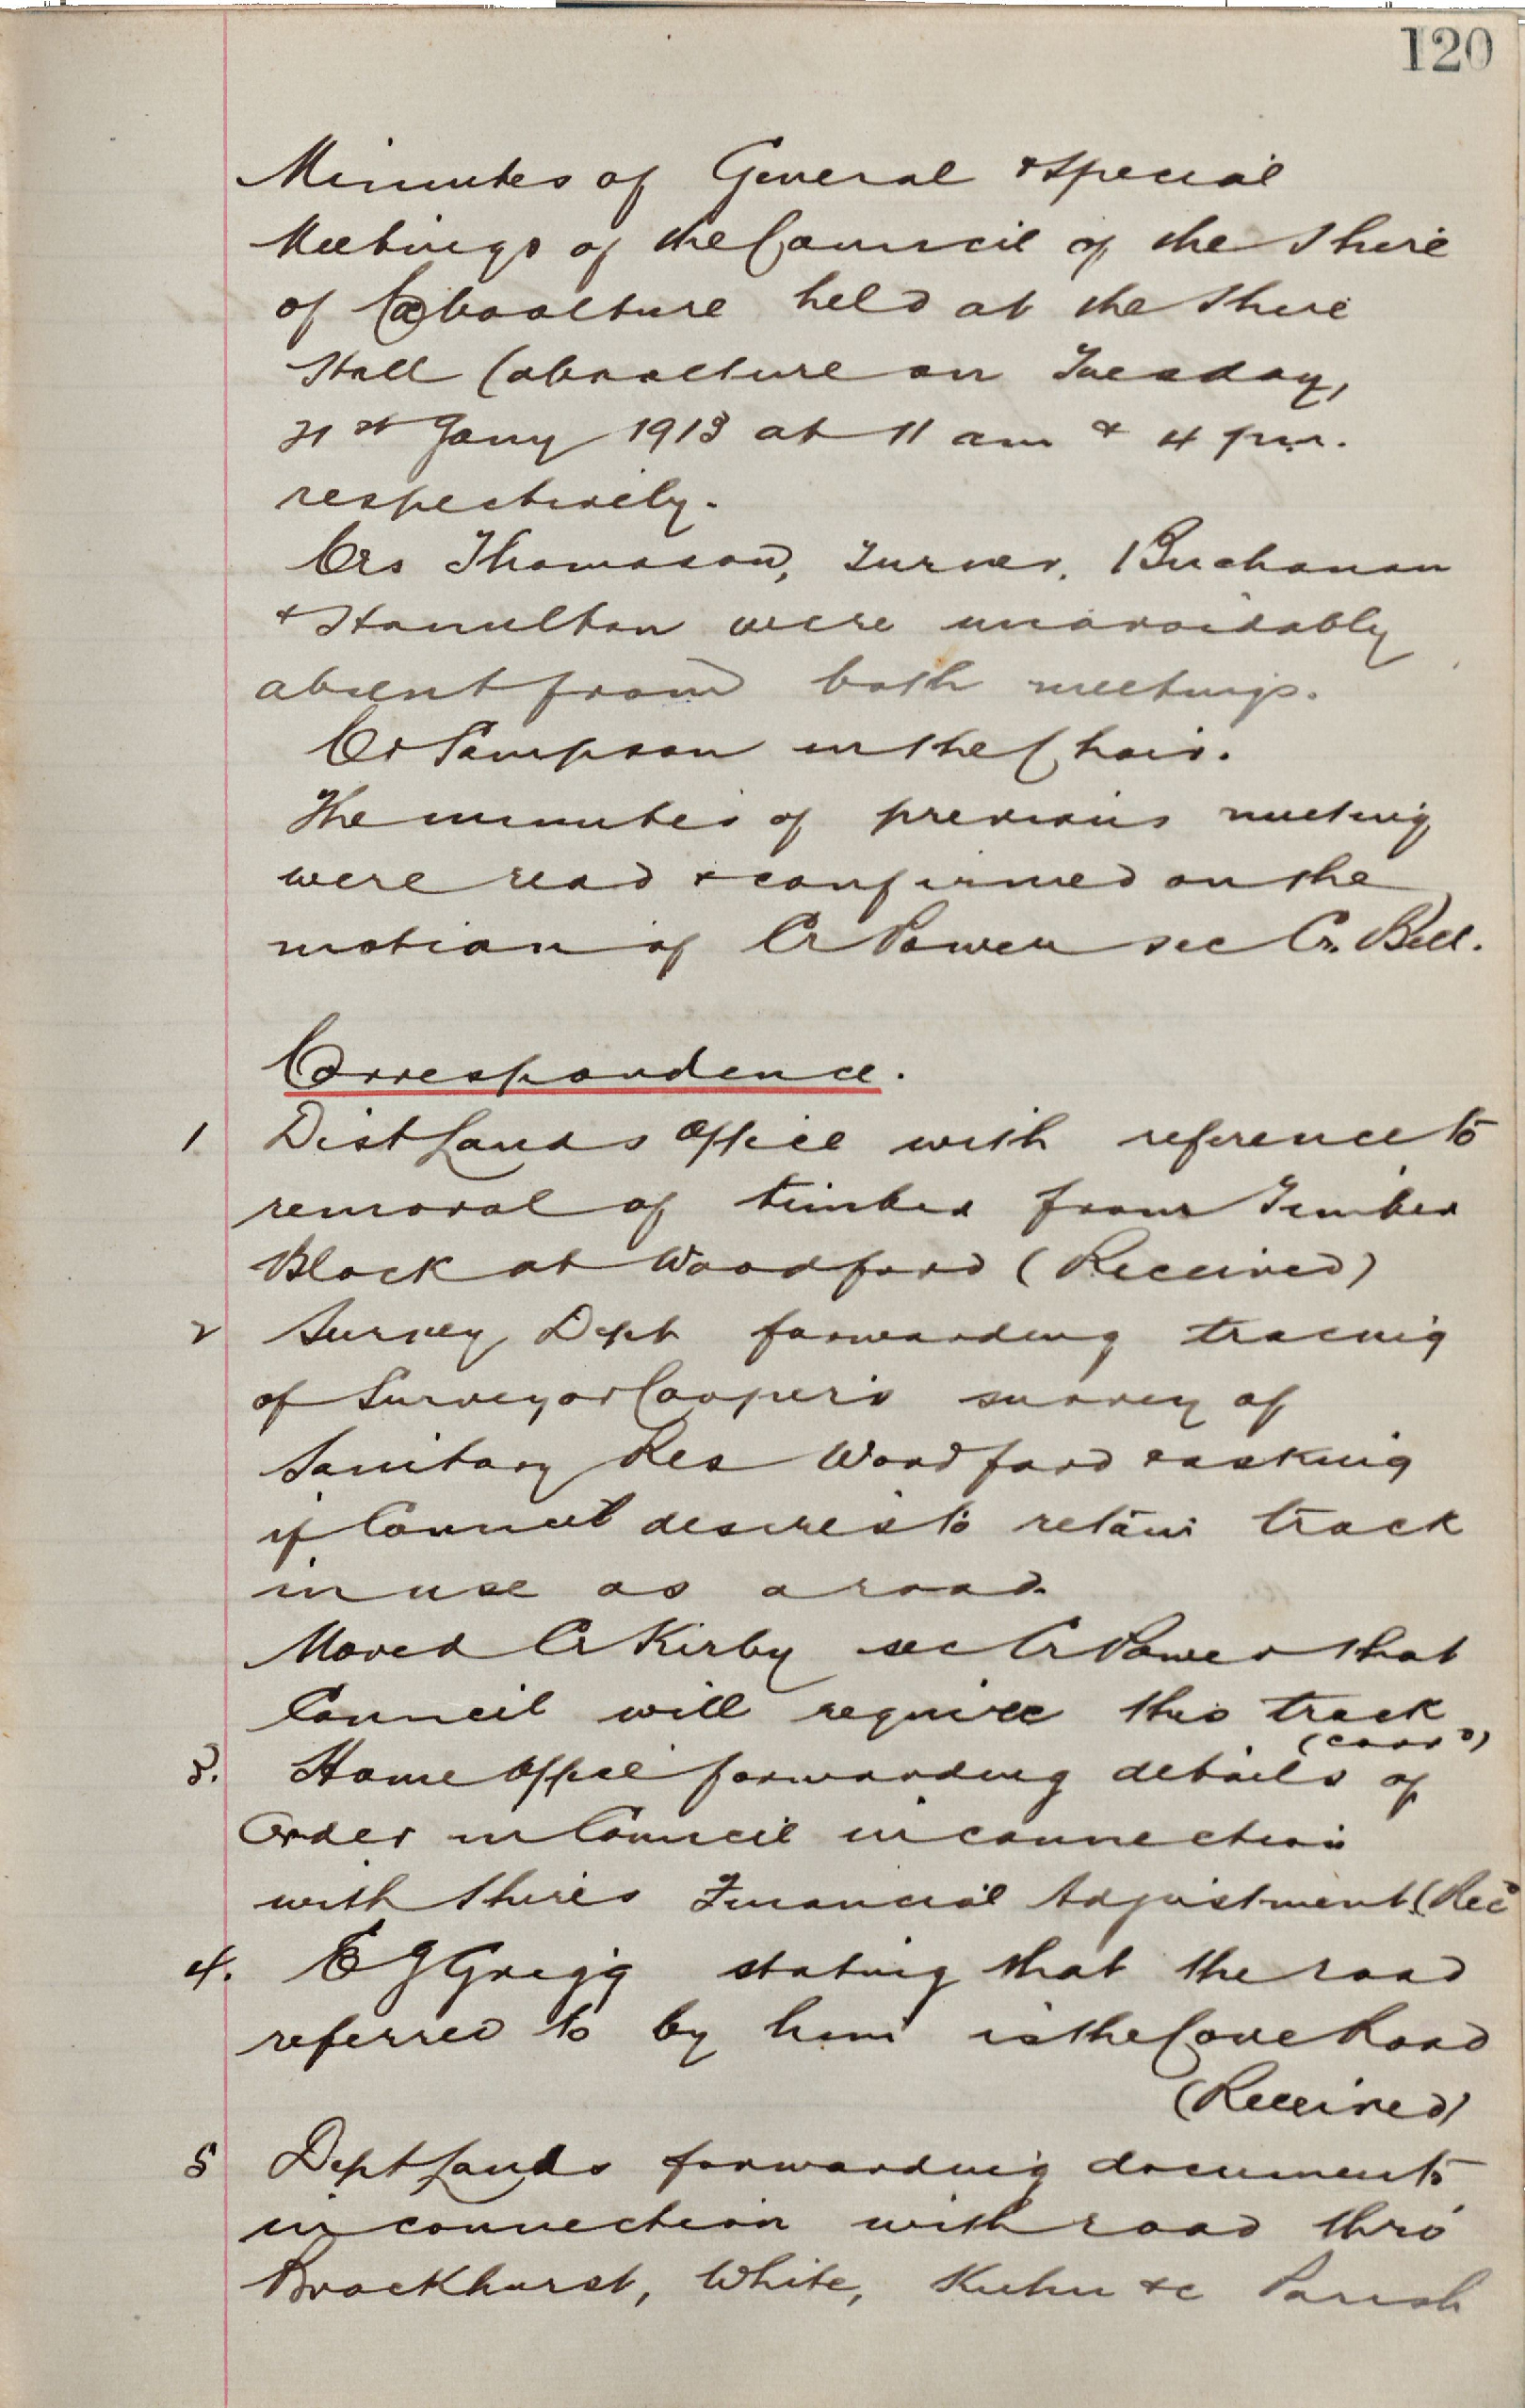 120
Minutes of General & Special
Meetings of the Council of the Shire
of Caboolture held at the Shire
Hall Caboolture on Tuesday,
21st Jany 1913 at 11 am & 4 pm.
respectively.
Crs Thomason, Turner, Buchanan
& Hamilton were unavoidably
absent from both meetings.
Cr Sampson in the Chair.
The minutes of previous meeting
were read & confirmed on the
motion of Cr Power sec Cr. Bell.
Correspondence.
1 Dist Lands Office with reference to
removal of timber from Timber
Block at Woodford (Received)
2 Survey Dept forwarding tracing
of Surveyor Cooper's survey of
Sanitary Res Woodford & asking
if Council desires to retain track
in use as a road.
Moved Cr Kirby sec Cr Power that
Council will require this track
(carrd)
3. Home Office forwarding details of
Order in Council in connection
with Shires Financial Adjustment (Rec
4. E J Grigg stating that the road
referred to by him is the Cove Road
(Received)
5 Dept Lands forwarding documents
in connection with road thro'
Brockhurst, White, Kuhn &c Parish